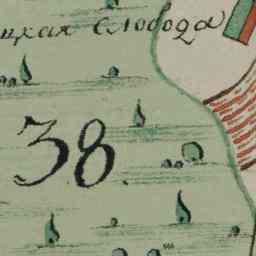 цкая Слобода
38.